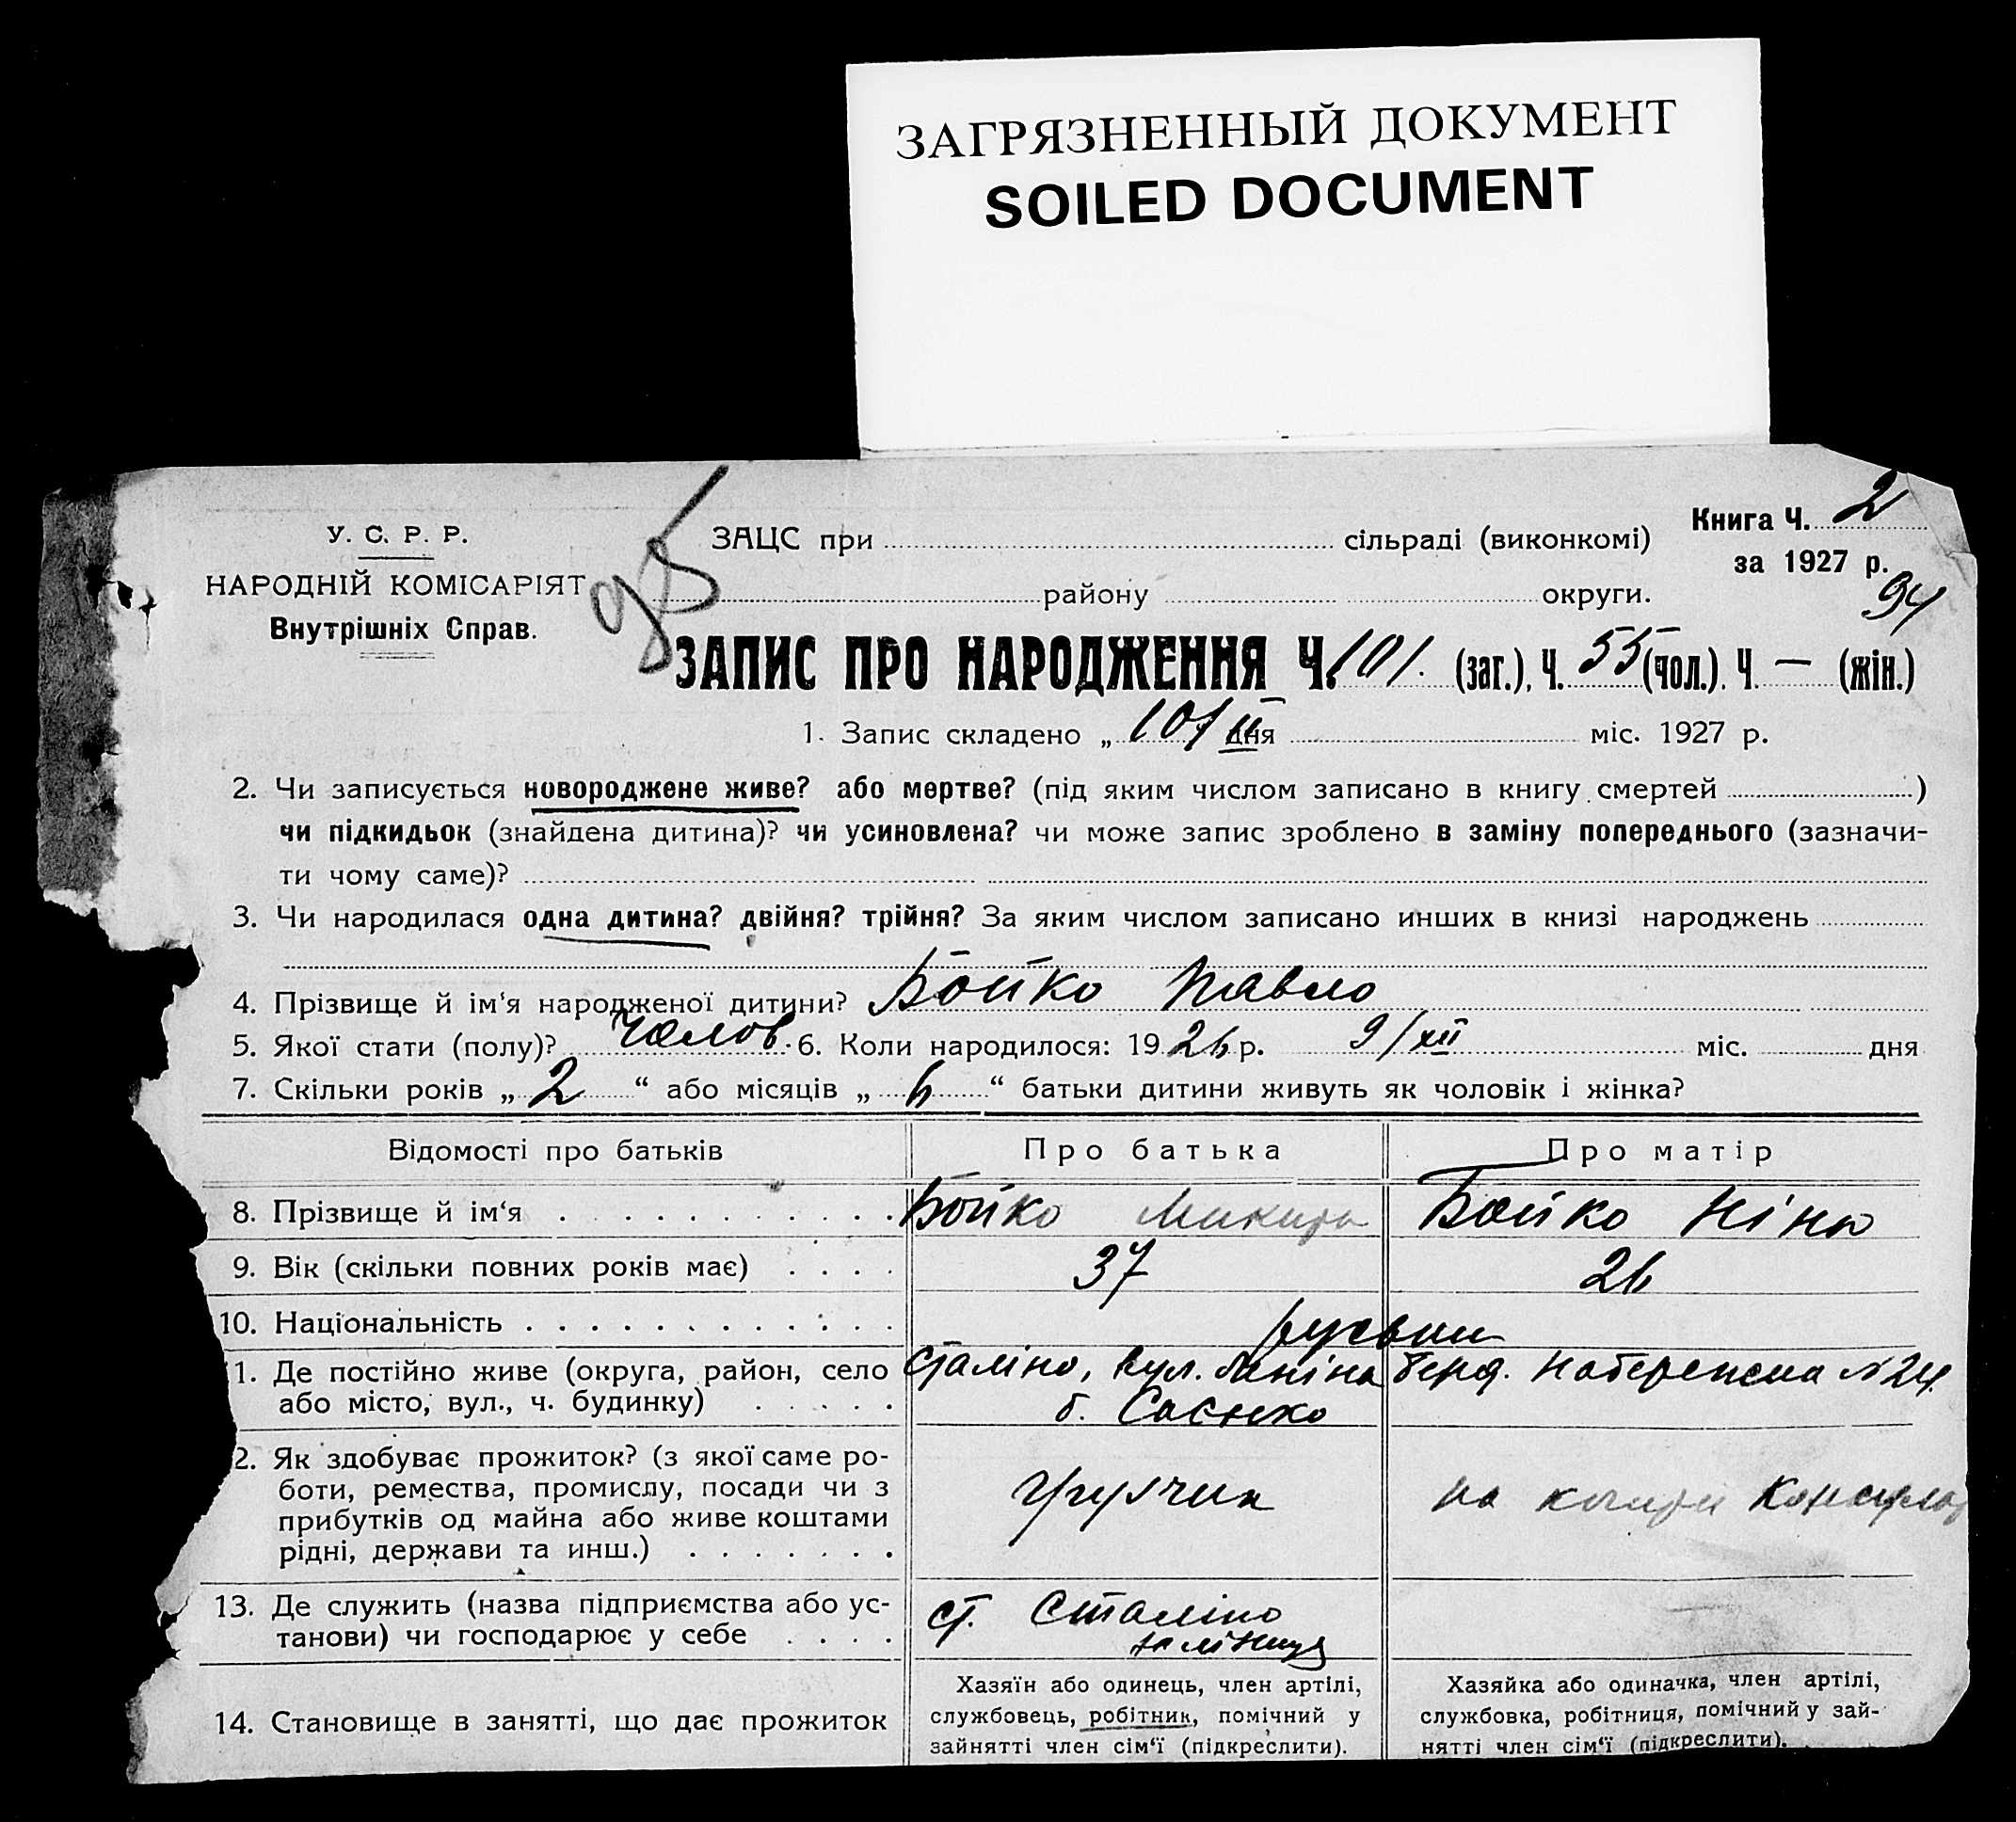 ЗАГРЯЗНЕННЫЙ ДОКУМЕНТ
SOILED DOCUMENT
У. С. Р. Р.
НАРОДНІЙ КОМІСАРІЯТ
Внутрішніх Справ.
95
ЗАЦС при сільраді (виконкомі)
району округи.
Книга Ч. 2
за 1927 р.
94
ЗАПИС ПРО НАРОДЖЕННЯ Ч. 101. (заг.), Ч. 55 (чол.). Ч. — (жін.)
1. Запис складено „ 10/II дня міс. 1927 р.
2. Чи записується новороджене живе? або мертве? (під яким числом записано в книгу смертей )
чи підкидьок (знайдена дитина)? чи усиновлена? чи може запис зроблено в заміну попереднього (зазначи-
ти чому саме)?
3. Чи народилася одна дитина? двійня? трійня? За яким числом записано инших в книзі народжень
4. Прізвище й ім‘я народженої дитини? Бойко Павло
5. Якої стати (полу)? чолов. 6. Коли народилося: 1926 р. 9/XII міс. дня
7. Скільки років „ 2 “ або місяців „ 6 “ батьки дитини живуть як чоловік і жінка?
Відомості про батьків Про батька Про матір
8. Прізвище й ім‘я Бойко Микита Бойко Ніна
9. Вік (скільки повних років має) 37 26
10. Національність
1. Де постійно живе (округа, район, село
або місто, вул., ч. будинку)
Сталіно, вул. Леніна
б. Саєнко
Берд. Набережна № 24.
2. Як здобуває прожиток? (з якої саме ро-
боти, ремества, промислу, посади чи з
прибутків од майна або живе коштами
рідні, держави та инш.)
грузчик
на
13. Де служить (назва підприємства або ус-
танови) чи господарює у себе
ст. Сталіно
14. Становище в занятті, що дає прожиток
Хазяїн або одинець, член артілі,
службовець, робітник, помічний у
зайнятті член сім‘ї (підкреслити).
Хазяйка або одиначка, член артілі,
службовка, робітниця, помічний у зай-
нятті член сім‘ї (підкреслити).